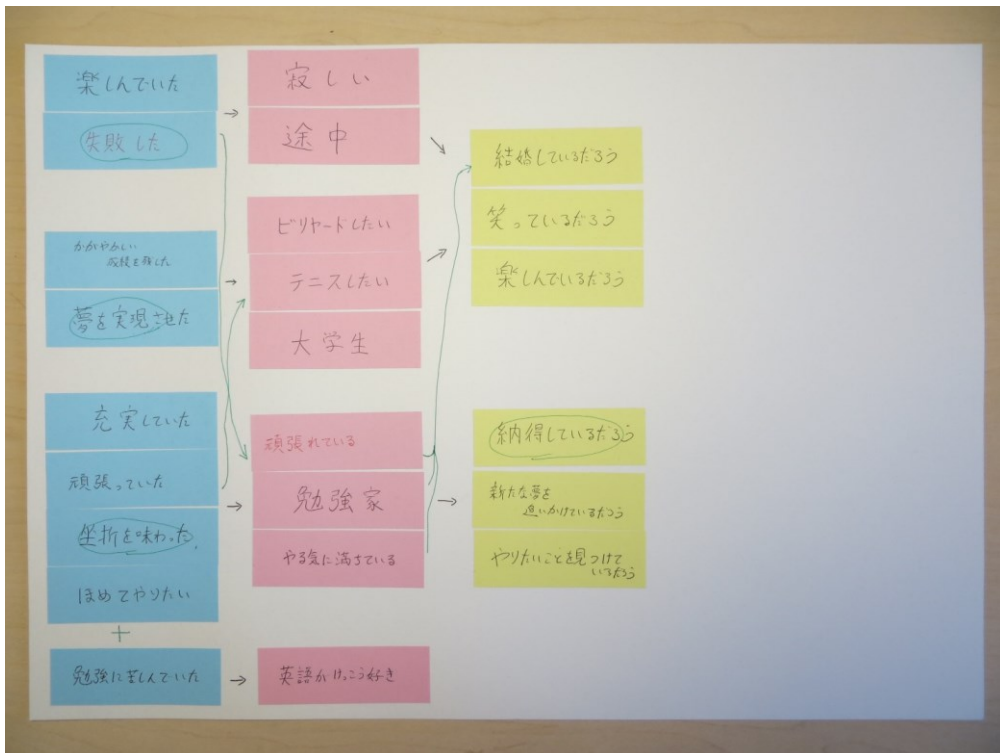 楽しんでいた
失敗した
かがやかしい
成績を残した
夢を実現させた
充実していた
頑張っていた
坐折を味わった
ほめてやりたい
+
勉強に苦しんでいた
寂しい
途中
ビリヤードしたい
テニスしたい
大学生
頑張れている
勉強家
やる気に満ちている
英語がけっこう好き
結婚しているだろう
笑っているだろう
楽しんでいるだろう
納得しているだろう
新たな夢を
追いかけているだろう
やりたいことを見つけて
いるだろう